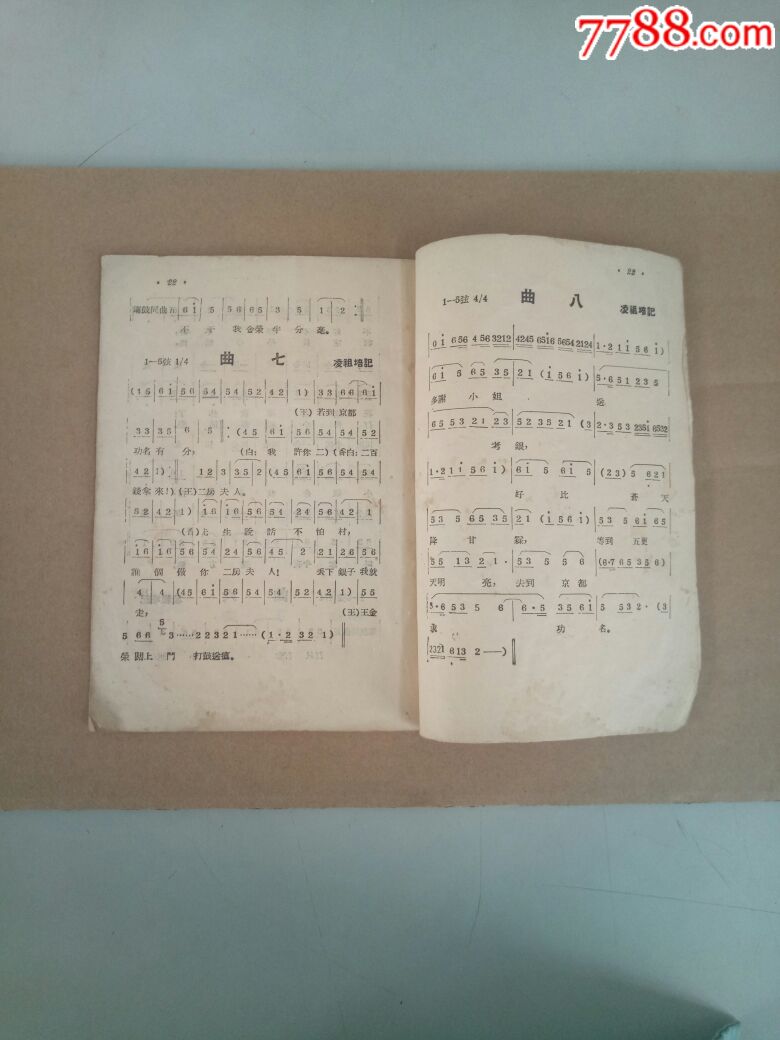 7788.com
• 22 •
鑼鼓同曲五 6 i 5 5 6 6 5 3 5 1 2
我
分毫。
1—5弦 1/4 曲 七 凌祖培記
(1 5 6 i 5 6 5 4 5 4 5 2 4 2 1) 3 3 6 6 6 i
(王)若到京都
3 3 3 5 6 5 (4 5 6 i 5 4 5 4 5 4 5 2
功名有分, (白:我 許你二)(香白:二百
4 2 1) 1 2 3 3 5 2 (4 5 6 i 5 6 5 4 5 6
錢拿來!)(王)二房夫人。
5 2 4 2 1) i 6 i 6 5 6 5 4 5 4 5 6 4 2 1
(香) 生說話不怕村,
i 6 i 6 5 6 5 4 5 6 4 5 4 2 2 1 2 4 5 6
誰個做你二房夫人! 丟下銀子我就
4 4 (4 5 6 i 5 6 5 4 5 2 5 4 5 2 4 2 1) 5 5
走, (王)王金
5 6 6 5 3……2 2 3 2 1……(1·2 3 2 1)
榮關上門 打鼓送瘟。
• 22 •
1—5弦 4/4 曲 八 凌祖培記
0 i 656 4 56 3212 4245 6516 5654 2124 1·2 1 i 5 6 i)
6 i 5 6 5 3 5 2 1 (i 5 6 i) 5·6 5 1 2 3 5
多謝小姐 送
6 5 5 3 2 1 2 3 5 2 3 5 2 1 (3 2·3 5 3 2351 6532
考銀,
1·2 1 i 5 6 i 6 i 5 6 i 5 (2 3) 5 6 2 1
好比 蒼天
5 3 5 6 5 3 5 2 1 (i 5 6 i) 5 3 5 6 i 6 5
降甘霖, 等到五更
5 5 1235 2 1· 5 3 5 5 6 (6·7 6 5 3 5 6)
天明亮, 去到京都
3·6 5 3 5 6 6·5 3 5 6 i 5 5 3 2·(3
求 功名。
2321 6 13 2 — —)